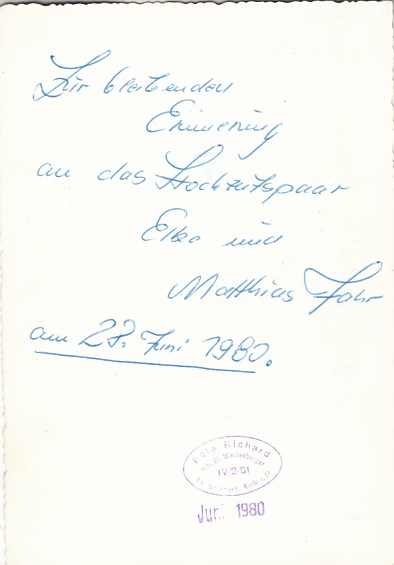 Zur bleibenden
Erinnerung
an das Hochzeitspaar
Elke und
Matthias Fahr
am 28. Juni 1980.
Foto Richard
IV 2 51
Juni 1980